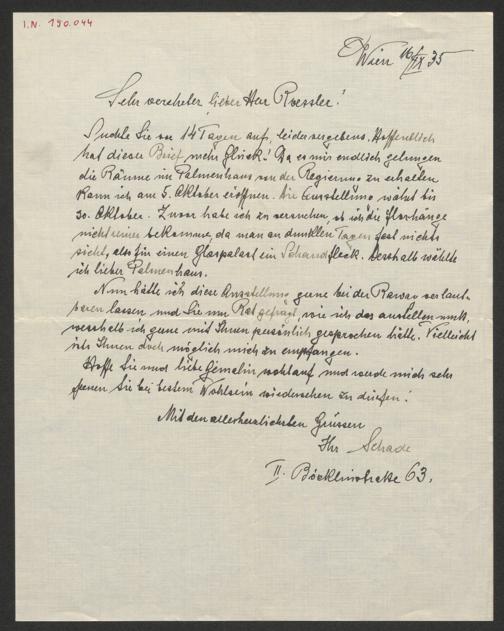 I.N. 190.044
Wien 16/IX 35
Sehr verehrter lieber Herr Roessler!
Suchte Sie vor 14 Tagen auf, leider vergebens. Hoffentlich
hat dieser Brief mehr Glück! Da es mir endlich gelungen
die Räume im Palmenhaus von der Regierung zu erhalten
kann ich am 5. Oktober eröffnen. Die Ausstellung währt bis
30. Oktober. Zuvor habe ich zu vernehmen, ob ich die
nicht bekomme, da man an dunklen Tagen fast nichts
sieht, also für einen Glaspalast ein Schandfleck. Deshalb wählte
ich lieber Palmenhaus.
Nun hätte ich diese Ausstellung gerne bei der verlaut-
baren lassen und Sie um Rat gefragt, wie ich das anstellen muss,
weshalb ich gerne mit Ihnen persönlich gesprochen hätte. Vielleicht
ists Ihnen doch möglich mich zu empfangen.
Hoffe Sie und liebe Gemalin wohlauf und werde mich sehr
freuen Sie bei bestem Wohlsein wiedersehen zu dürfen!
Mit den allerherzlichsten Grüssen
Ihr Schade
II. Böcklinstrake 63.